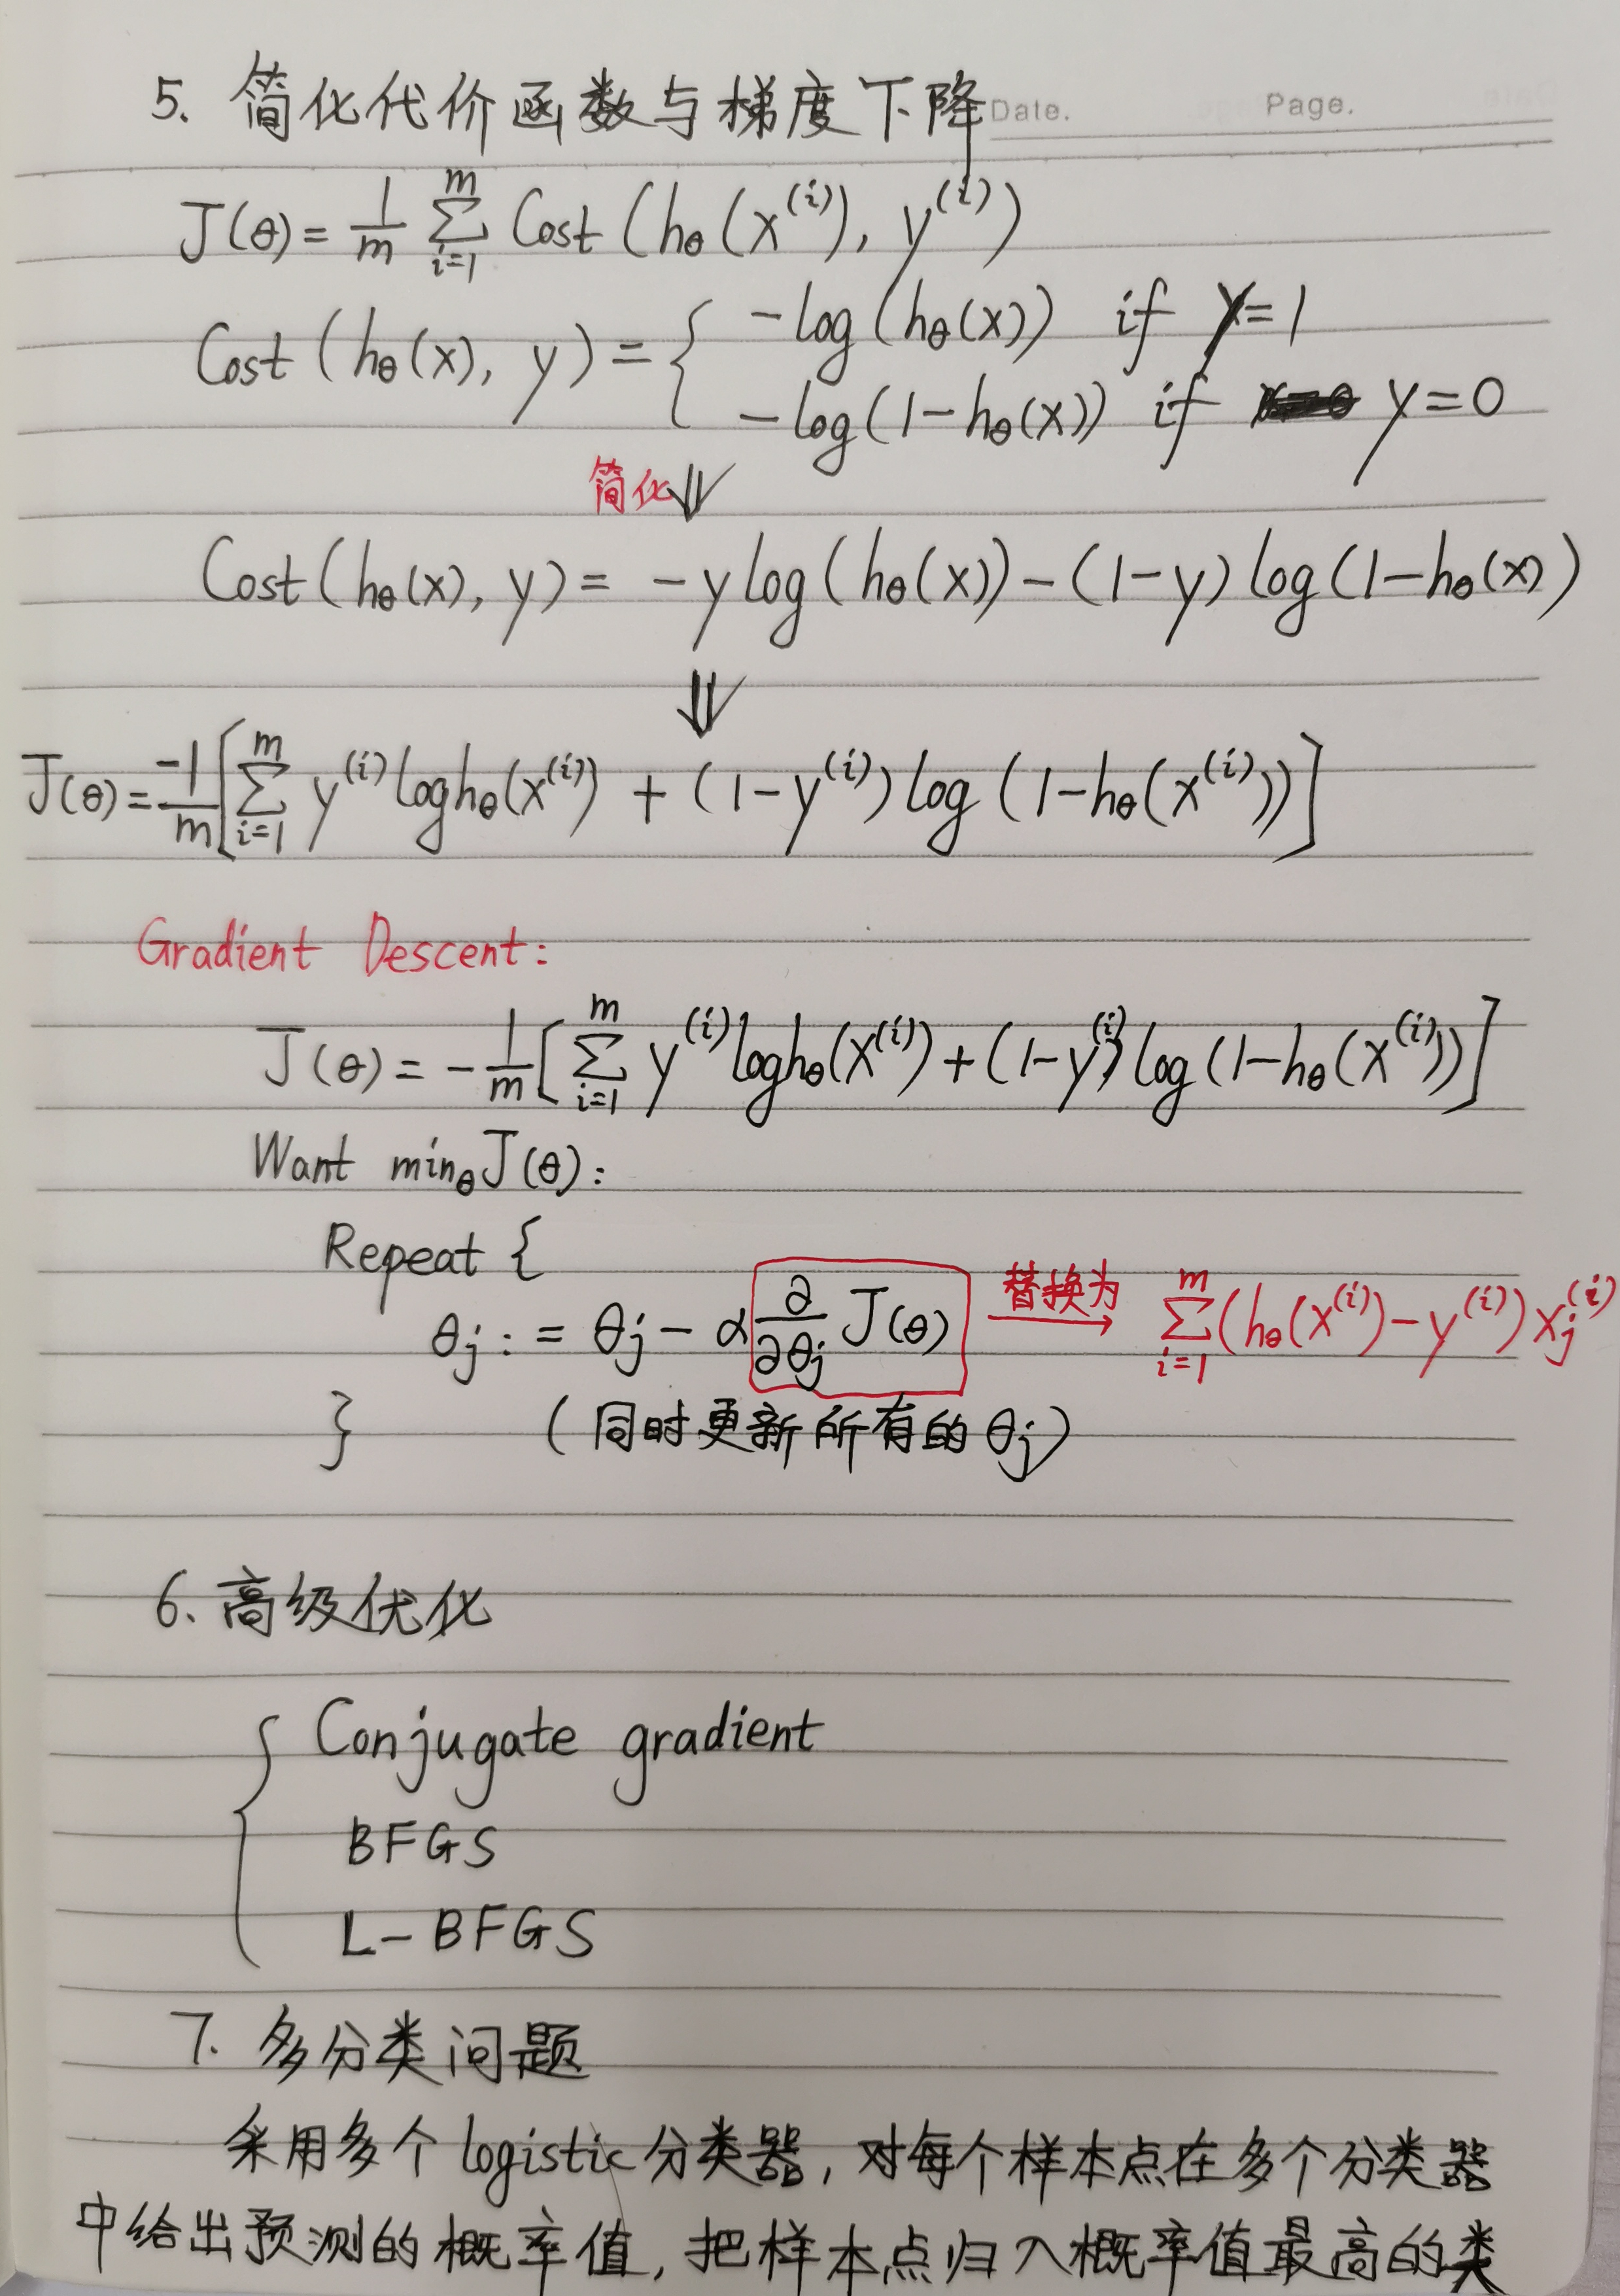 5. 简化代价函数与梯度下降
Date. Page.
J(θ) = 1/m ∑_{i=1}^{m} Cost(hθ(x^{(i)}), y^{(i)})
Cost(hθ(x), y) = { -log(hθ(x)) if y=1
-log(1-hθ(x)) if y=0
简化 ⇓
Cost(hθ(x), y) = -y log(hθ(x)) - (1-y) log(1-hθ(x)
⇓
J(θ) = -1/m [∑_{i=1}^{m} y^{(i)} log hθ(x^{(i)}) + (1-y^{(i)}) log (1-hθ(x^{(i)}))]
Gradient Descent:
J(θ) = -1/m [∑_{i=1}^{m} y^{(i)} log hθ(x^{(i)}) + (1-y^{(i)}) log (1-hθ(x^{(i)}))]
Want minθ J(θ):
Repeat {
θj := θj - α ∂/∂θj J(θ) 替换为 → ∑_{i=1}^{m} (hθ(x^{(i)}) - y^{(i)}) xj^{(i)}
} (同时更新所有的 θj)
6. 高级优化
{ Conjugate gradient
BFGS
L-BFGS
7. 多分类问题
采用多个 logistic 分类器, 对每个样本点在多个分类器
中给出预测的概率值, 把样本点归入概率值最高的类